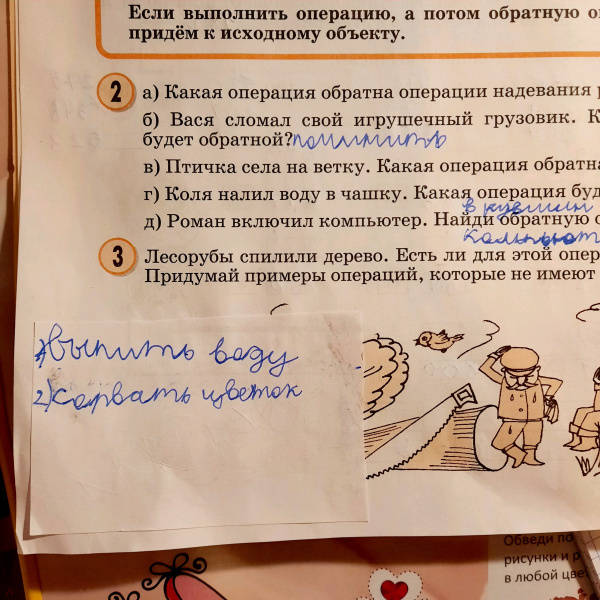 Если выполнить операцию, а потом обратную о
придём к исходному объекту.
2 а) Какая операция обратна операции надевания
б) Вася сломал свой игрушечный грузовик. К
будет обратной? починить
в) Птичка села на ветку. Какая операция обратна
г) Коля налил воду в чашку. Какая операция буд
в кувшин
д) Роман включил компьютер. Найди обратную о
3 Лесорубы спилили дерево. Есть ли для этой опер
Придумай примеры операций, которые не имеют
выпить воду
2) сорвать цветок
Обведи по
рисунки и р
в любой цве